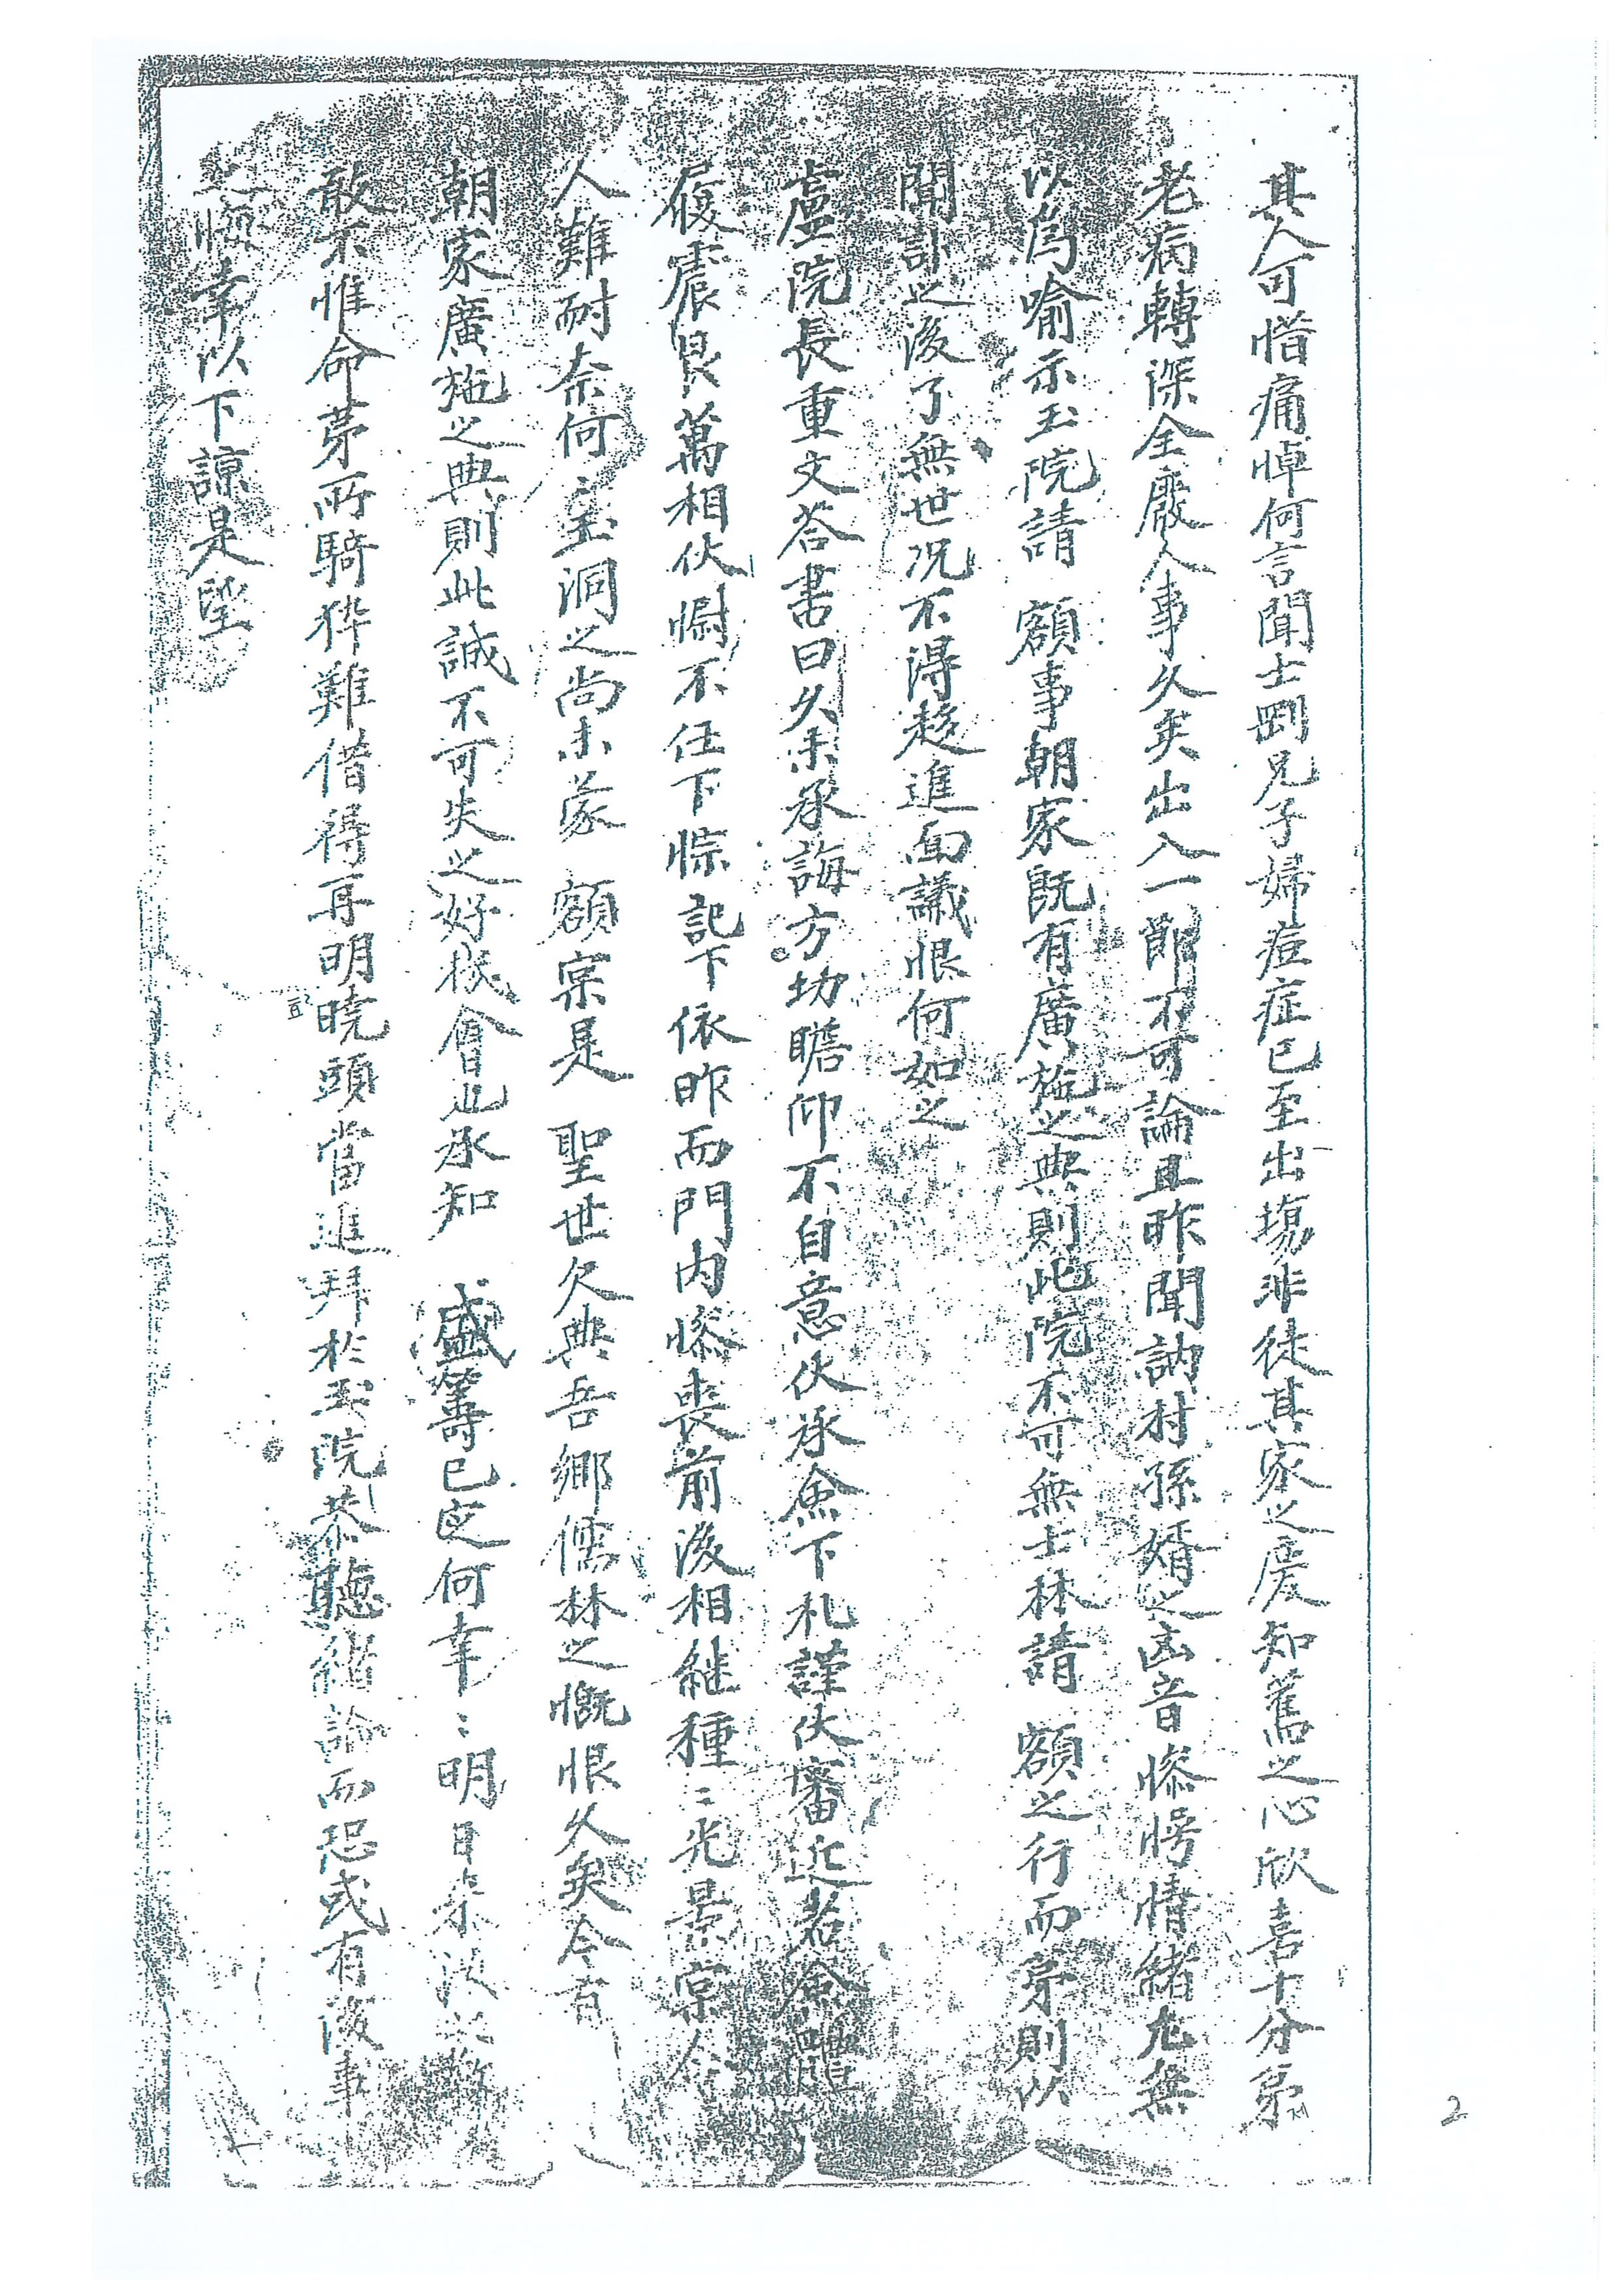 其人可惜痛悼何言聞士剛兄子婦痘症已至出場非徒其家之慶知舊之心欣喜十分弟
제
老病轉深全廢人事久矣出入一節不可論且昨聞訥村孫婿之凶音慘愕情緒尤無
以爲喩示玉院請 額事朝家旣有廣施之典則此院不可無士林請 額之行而弟則以
聞訃之後了無世況不得趍進面議恨何如之
盧院長重文答書曰久未承誨方切瞻仰不自意伏承僉下札謹伏審近若僉體
履震艮萬相伏慰不任下悰記下依昨而門內慘喪前後相継種〻光景棠令
人難耐奈何玉洞之尚未蒙 額寀是 聖世欠典吾鄉儒林之慨恨久矣今有
朝家廣施之典則此誠不可失之好機會也承知 盛籌已定何幸〻明日來
敢不惟命茅所騎牸難借得再明曉頭當進拜於玉院恭聽緒論而恐或有後事
효
悔幸以下諒是望
2